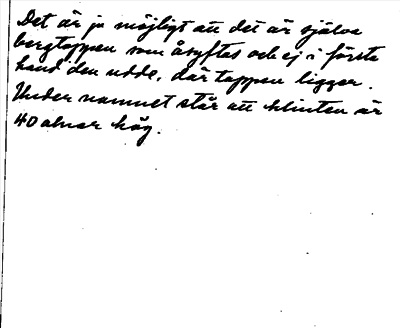 Det är ju möjligt att det är själva
bergtoppen som åsyftas och ej i första
hand den udde, där toppen ligger.
Under namnet står att klinten är
40 alnar hög.